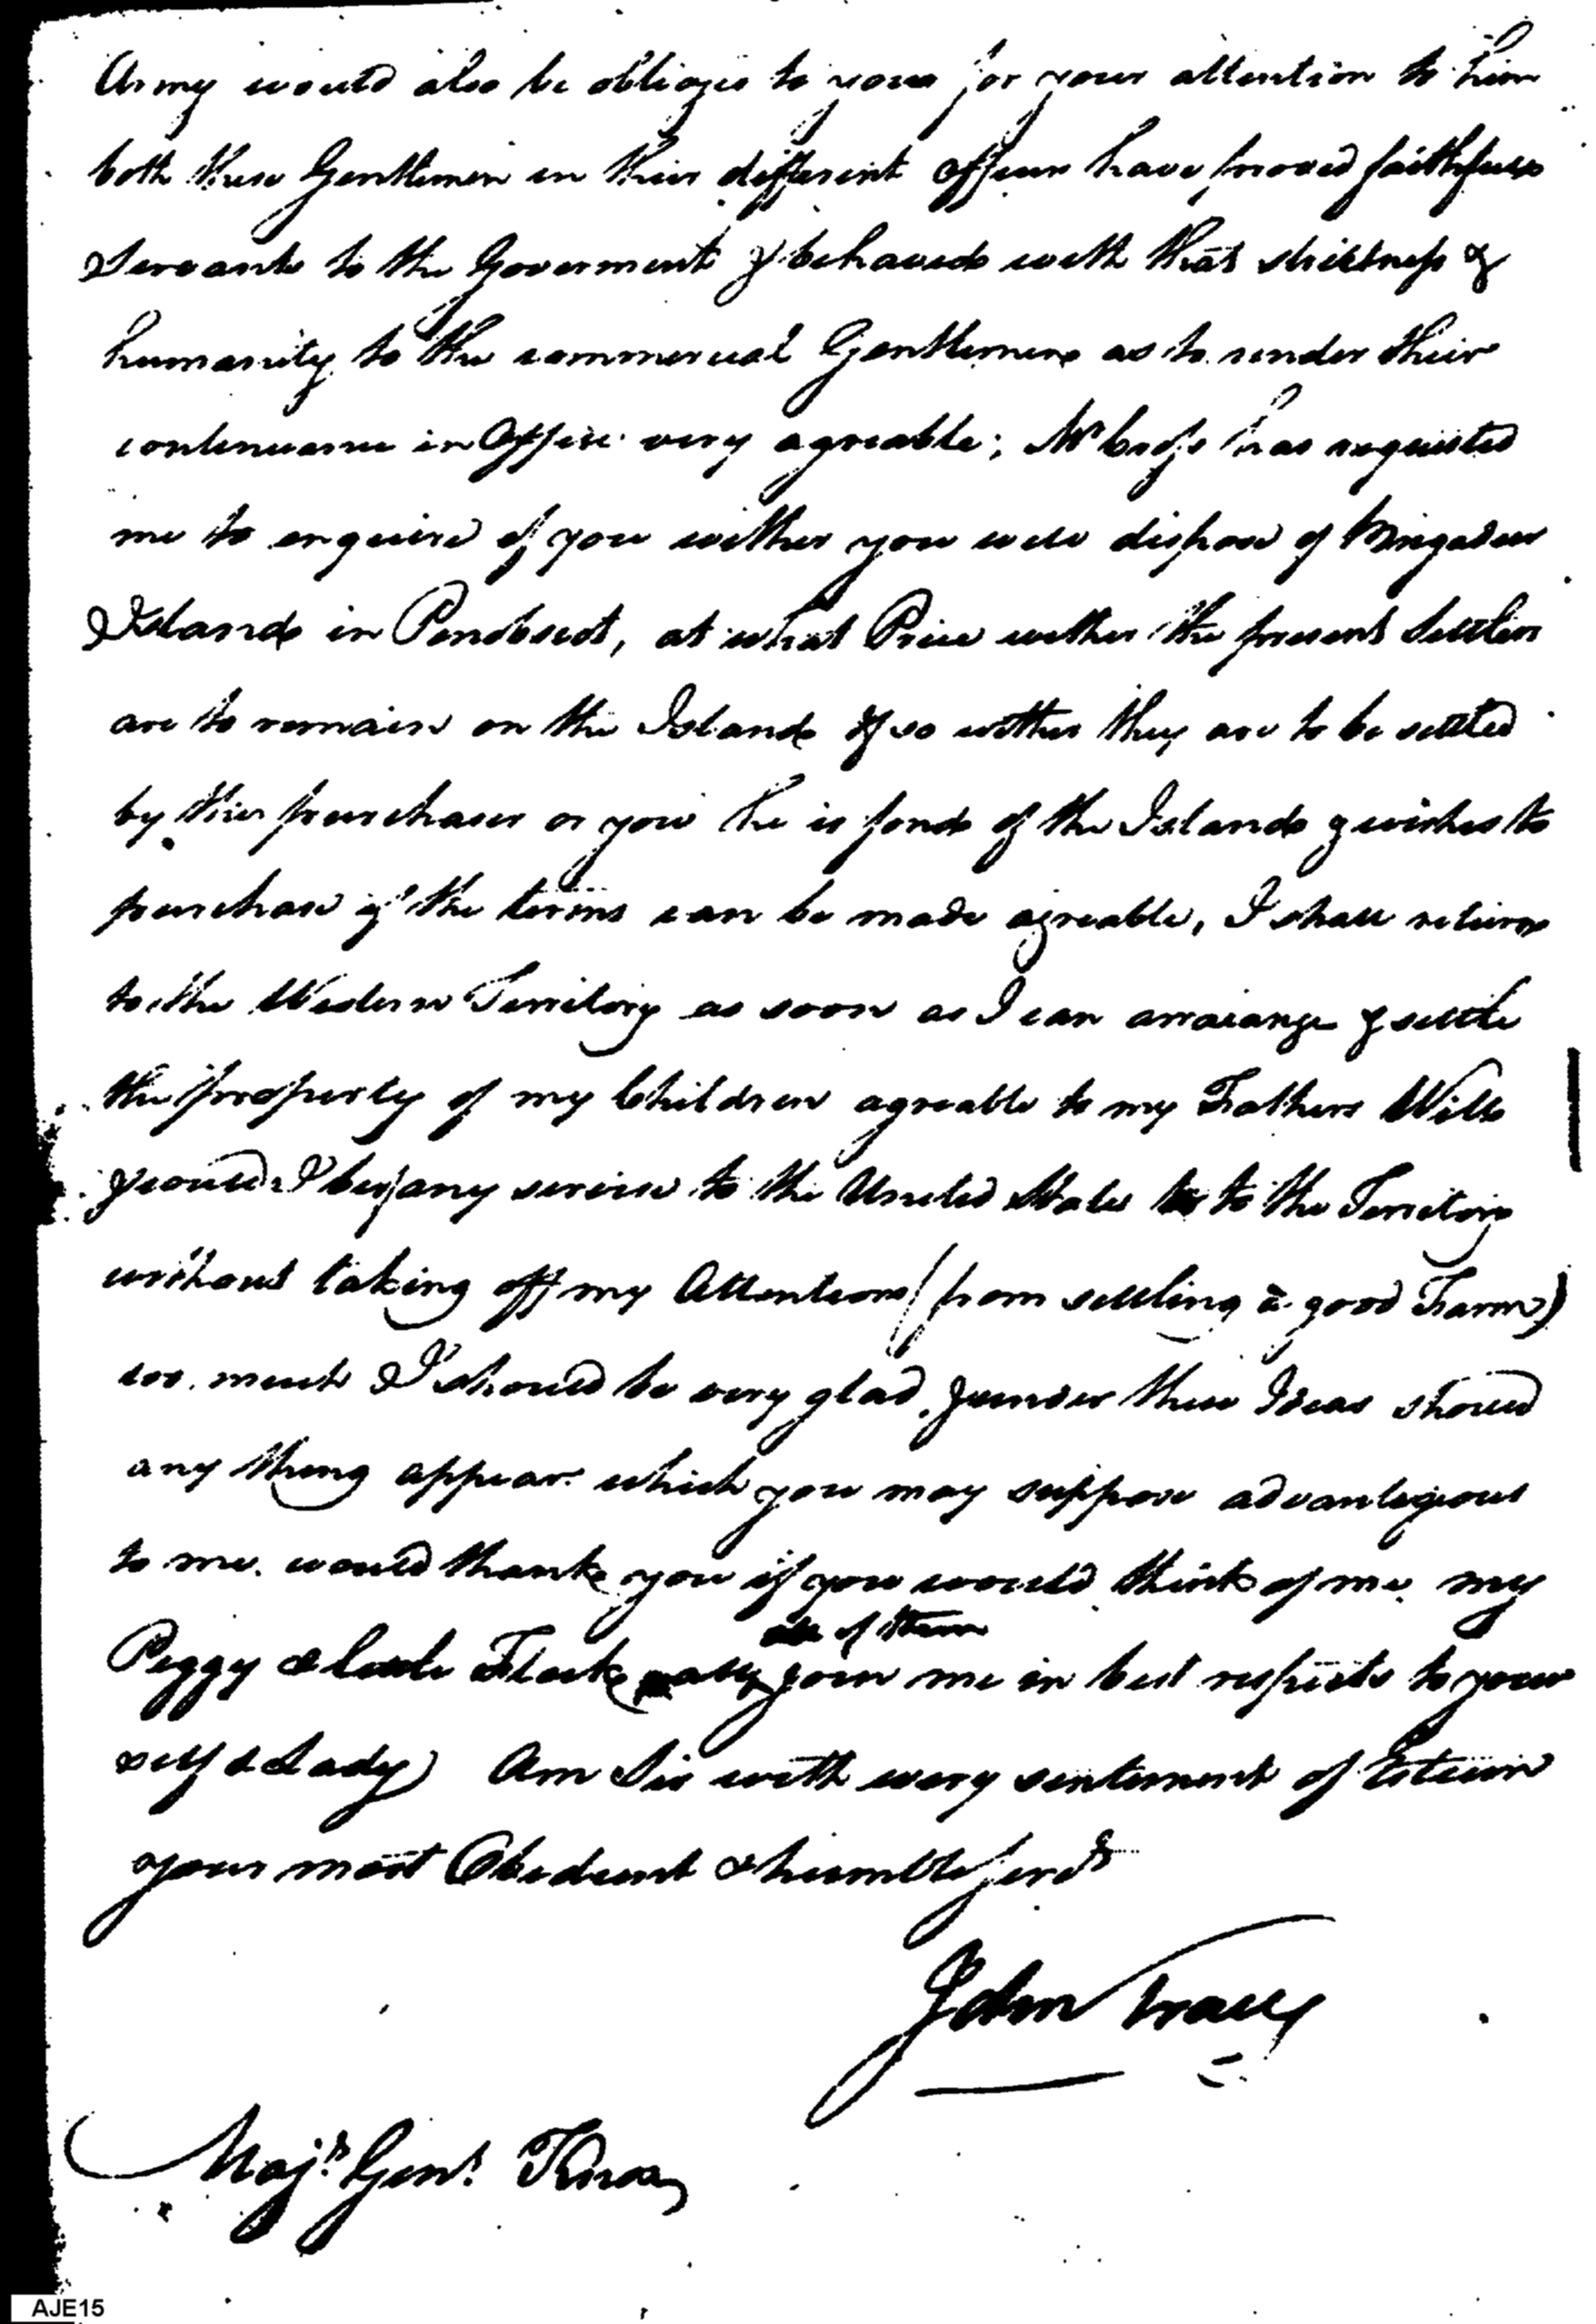 Army would also be obliged to you for your attention to him
both these Gentlemen in their different offices have proved faithfull
Servants to the Goverment & behaved with that strictness &
humanity to the commercial Gentlemen as to render their
continuance in Office very agreable; Mr has requested
me to enquire of you wither you will dispose of
Island in Penobscot, at what Price wether the present Settlers
are to remain on the Island if so wether they are to be settled
by the purchaser or you he is fond of the Island & wishes to
purchase if the terms can be made agreable, I shall return
to the Western Territory as soon as I can arraiange & settle
the property of my Children agreable to my Fathers Will
& could I be any service to the United States to the Territory
without taking off my Attention (from settling a good Farm)
too much I should be very glad, & under these Ideas should
any thing appear which you may suppose advantagious
to me. would thank you if you would think of me. my
of them
Peggy & little Flock all join me in best respects to your
self & Lady) Am Sir with every sentement of Esteem
your most Obedient & humble servt
John
Majr. Genl. Knox
AJE15